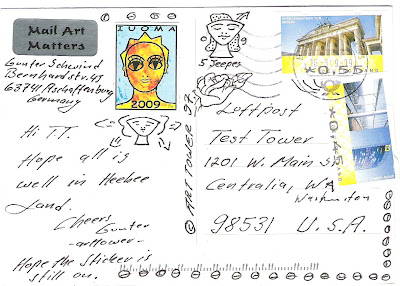 Mail Art
Matters
Gunter Schwind
Bernhardstr. 45
63741 Aschaffenburg
Germany
Hi T.T.
Hope all is
well in Heebee
Land.
Cheers
Gunter
Hope the Sticker is
still on.
IUOMA
2009
TA
5 Jeepes
© ART TOWER 97
Leftpost
Test Tower
1201 W. Main St
Centralia, WA
Washington
98531 U.S.A.
0.55
0.45